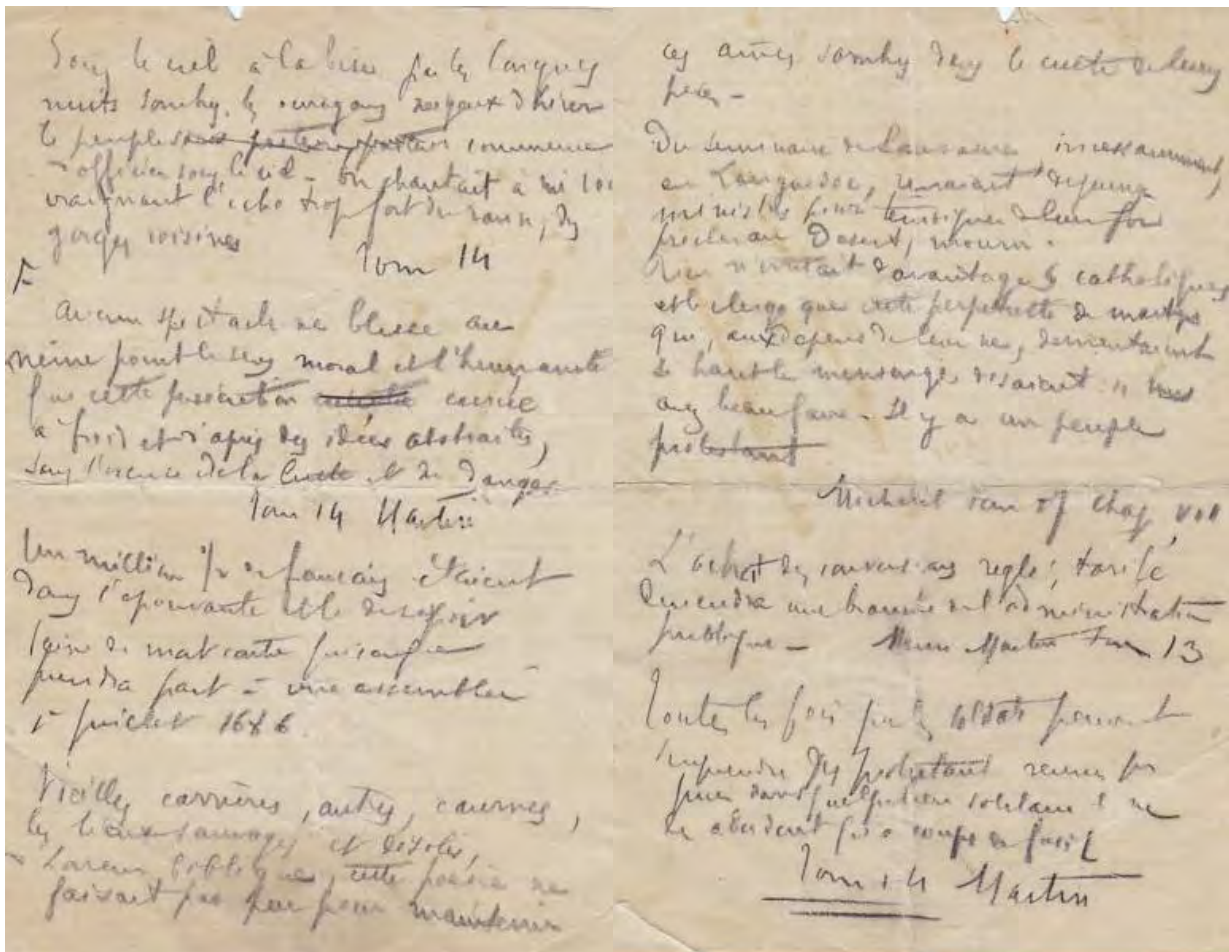 Sous le ciel à la bise par les longues
nuits sombres, les ouragans neigeux d'hiver
le peuple sans commence
à officier sous le ciel - on chantait à mi
craignant l'écho trop fort du ravin, des
gorges voisines
Tom 14
Aucun spectacle ne blesse au
même point le sens moral et l'humanité
que cette persécution exercée
à froid et d'après des idées abstraites,
sans l'excuse de la lutte et du danger
Tom 14 Martin
Un million ½ de français étaient
dans l'épouvante et le désespoir
peine de mort contre quiconque
prendra part à une assemblée
1er juillet 1686
Vieilles carrières, antres, cavernes,
les lieux sauvages et désolés,
L'horreur biblique, cette poésie ne
faisait pas peu pour maintenir
ces âmes sombres dans le culte de leurs
pères -
Du séminaire de Lausanne incessamment,
en Languedoc, venaient de jeunes
ministres pour témoigner de leur foi
prêcher au Désert, mourir.
Rien n'irritait davantage les catholiques
et le clergé que cette perpétuité de martyrs
qui, aux dépens de leur vie, démentaient
le haut mensonge disaient : vous
avez beau faire - Il y a un peuple
protestant
Michelet chap VIII
L'achat des conversions réglé, tarifé
deviendra une branche de l'administration
publique - Henri Martin Tom 13
Toutes les fois que les soldats peuvent
surprendre des protestants réunis pour
prier dans quelque lieu solitaire ils ne
les abordent qu'à coups de fusil
Tom 14 Martin